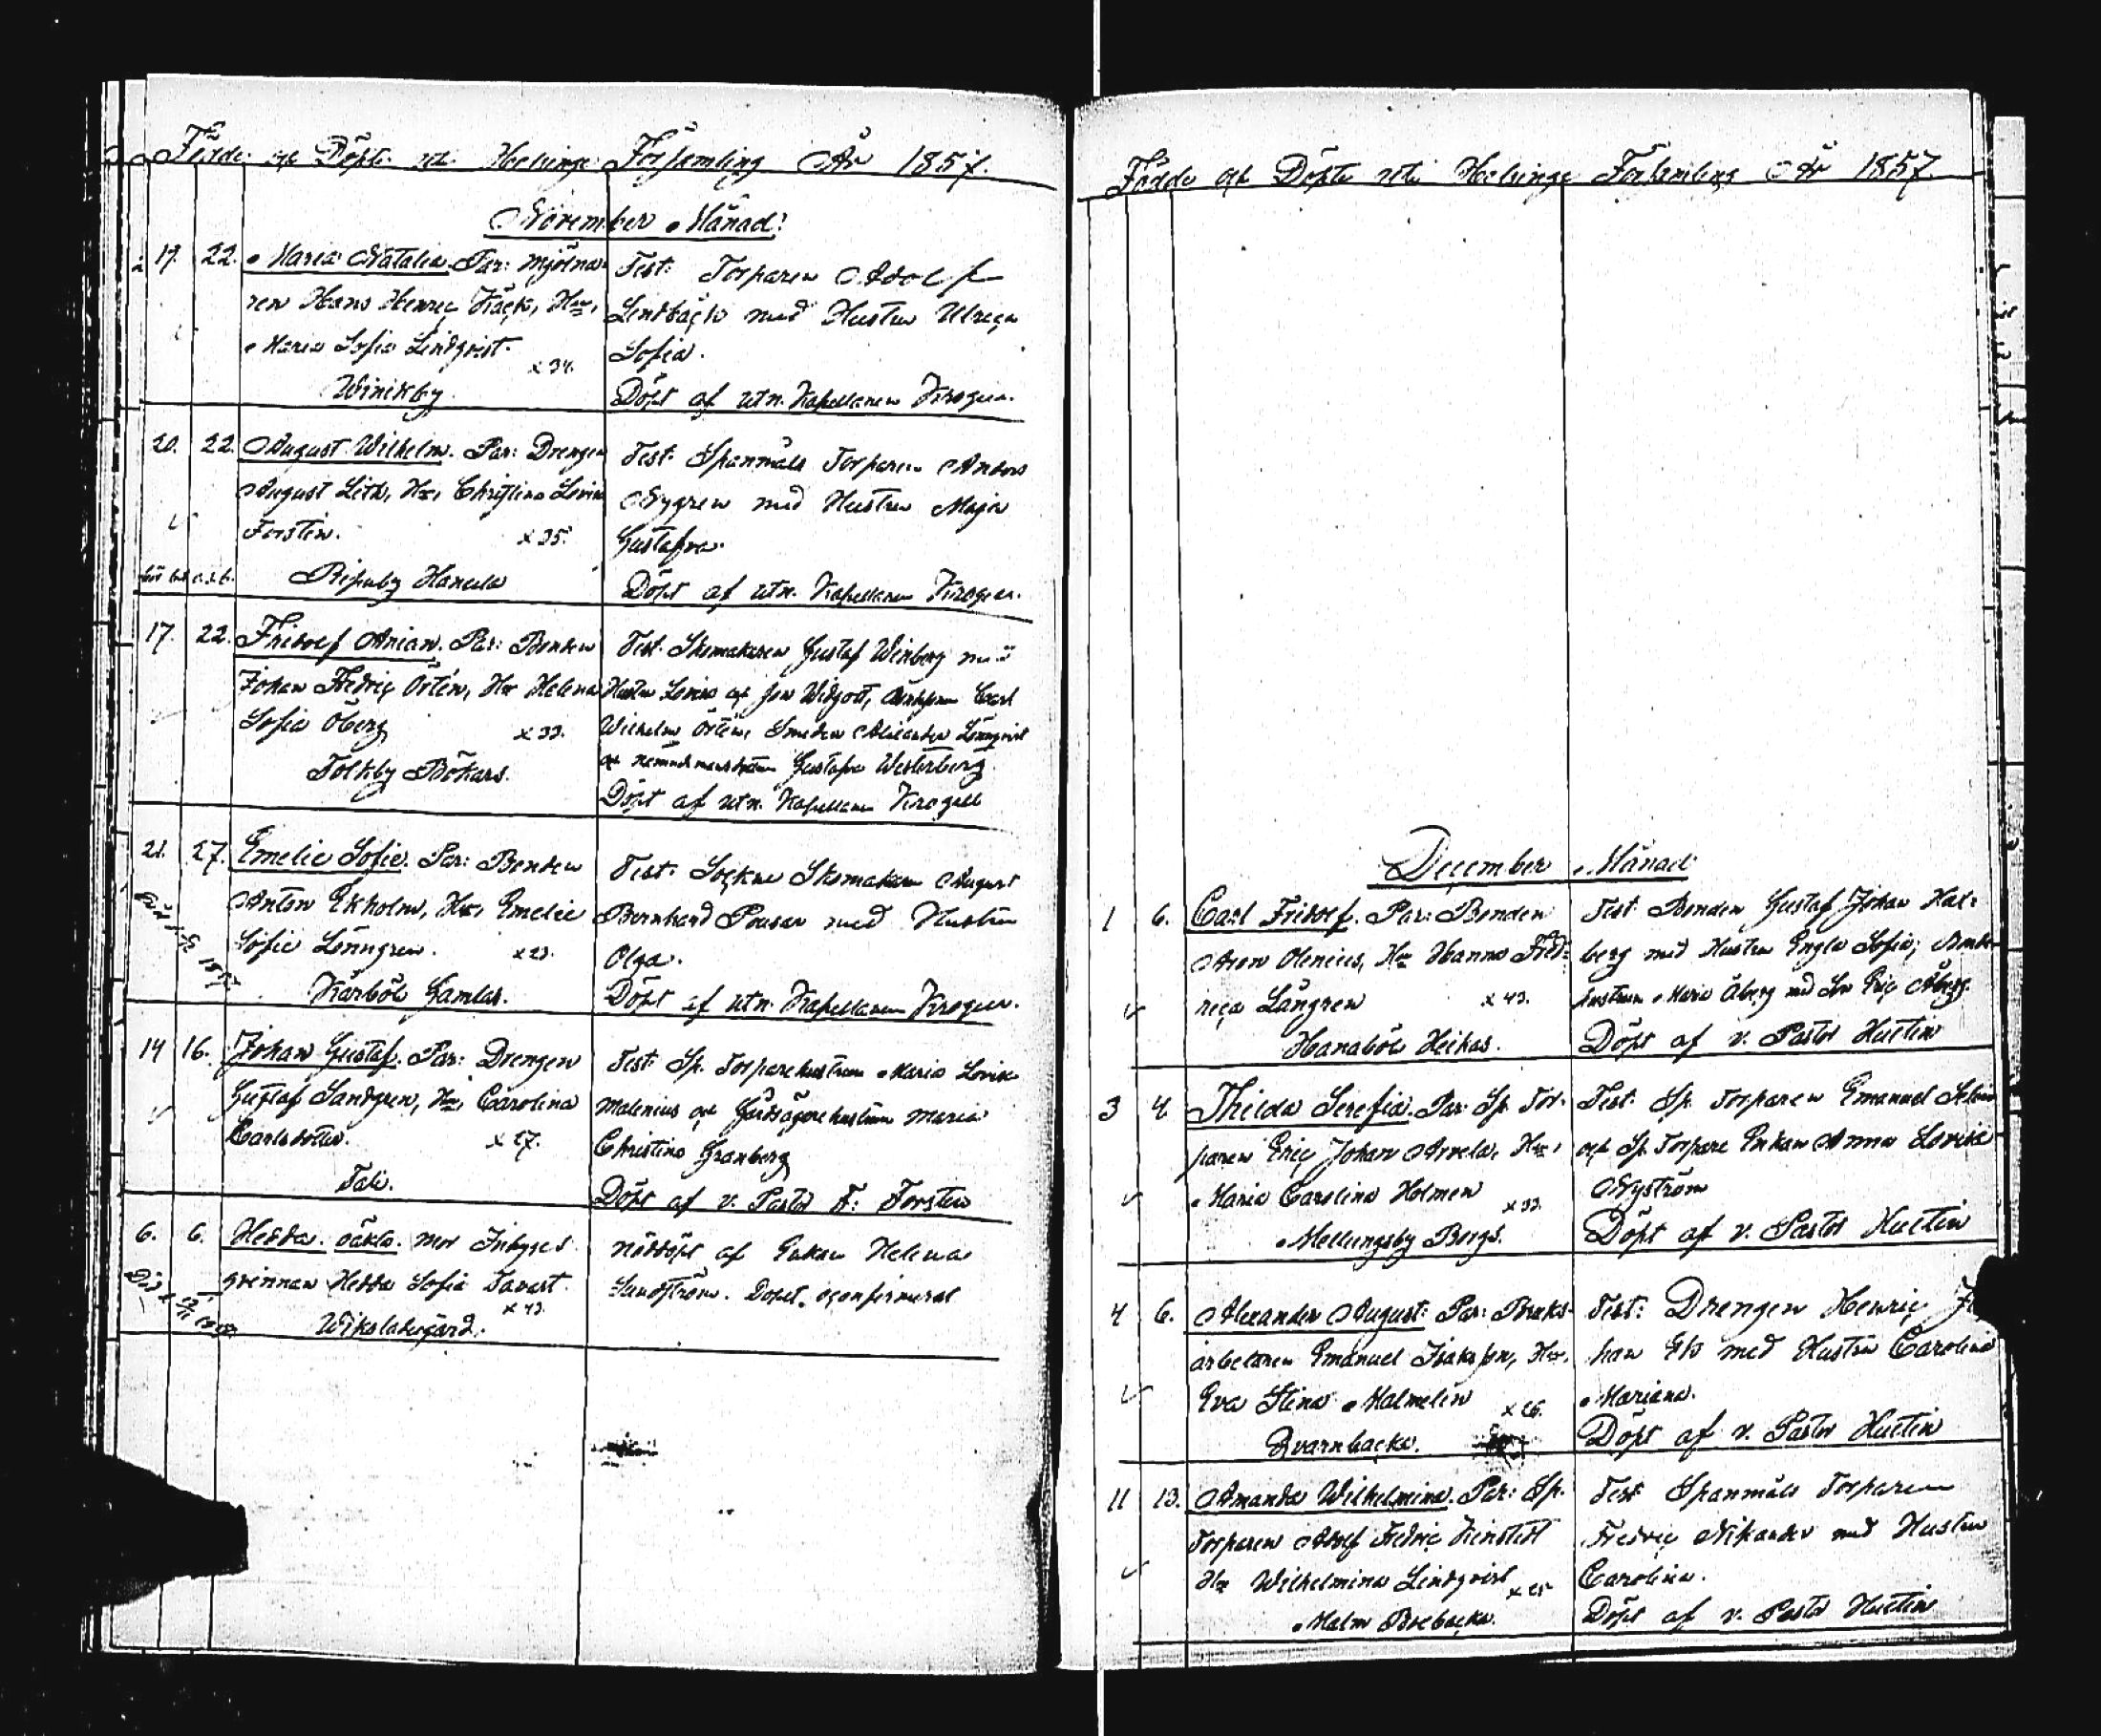 Födde och Döpte uti Helsinge Församling År 1857.
November Månad.
17. 22. Maria Natalia. Par: Mjölna-
ren Hans Henric Käck, Hu,
Maria Sofia Lindqvist. x 34.
Winikby.
Test: Torparen Adolf
Lindbäck med Hustru Ulrica
Sofia.
Döpt af utn. Kapellanen Krogell.
20. 22. August Wilhelm. Par: Drengen
August Lith, Hu, Christina Lovisa
Forstén. x 35.
Ripuby Hanala
Test: Spanmåls Torparen Anders
Nygren med Hustru Maja
Gustafva.
Döpt af utn. Kapellanen Krogell.
17. 22. Fridolf Anian. Par: Bonden
Johan Fredric Örtén, Hu Helena
Sofia Öberg x 33.
Tolkby Bökars.
Test: Skomakaren Gustaf Winberg med
Hustru Lovisa och Carl
Wilhelm Örtén, Smeden Alexander Lönnqvist
och Gustafva Westerberg.
Döpt af utn. Kapellanen Krogell
21. 27. Emelie Sofie. Par: Bonden
Anton Ekholm, Hu, Emelie
Sofie Lönngren. x 23.
Kårböle Gamlas.
Test: Sockne Skomakaren August
Bernhard med Hustru
Olga.
Döpt af utn. Kapellanen Krogell.
14 16. Johan Gustaf. Par: Drengen
Gustaf Sandgren, Hu, Carolina
Carlsdotter. x 27.
Tali.
Test: Sp. Torparehustrun Maria Lovisa
Malenius och Gårdsägarehustrun Maria
Christina Granberg
Döpt af v. Pastor F: Forstén
6. 6. Hedda. oäkta. Mor Inhyses
qvinnan Hedda Sofia Tavast.
x 43.
Wiksladugård.
Nöddöpt af Enkan Helena
Sundström. Dopet confirmerat
Födde och Döpte uti Helsinge Församling År 1857.
December Månad
1 6. Carl Fridolf. Par: Bonden
Aron Olenius, Hu Hanna Fred-
rica Långren x 43.
Hanaböle Heikas.
Test: Bonden Gustaf Johan Hal-
berg med Hustru Engla Sofia;
hustrun Maria Åberg med Son Eric Åberg.
Döpt af v. Pastor Huctin
3 4 Thilda Serefia. Par: Sp. Tor-
paren Eric Johan Arvela, Hu,
Maria Carolina Holmen x 33.
Mellungsby Bergs.
Test: Sp. Torparen Emanuel
och Sp. Torpare Enkan Anna Lovisa
Nyström
Döpt af v. Pastor Huctin
4 6. Alexander August. Par: Bruks-
arbetaren Emanuel Isaksson, Hu,
Eva Stina Malmelin x 26.
Qvarnbacka.
Test: Drengen Henric Jo
han Ek med Hustru Carolina
Mariana.
Döpt af v. Pastor Huctin
11 13. Amanda Wilhelmina. Par: Sp.
Torparen Adolf Fredric Kinstedt
Hu Wilhelmina Lindqvist x 25
Malm Brobacka.
Test: Spanmåls Torparen
Fredric Nikander med Hustru
Carolina.
Döpt af v. Pastor Huctin